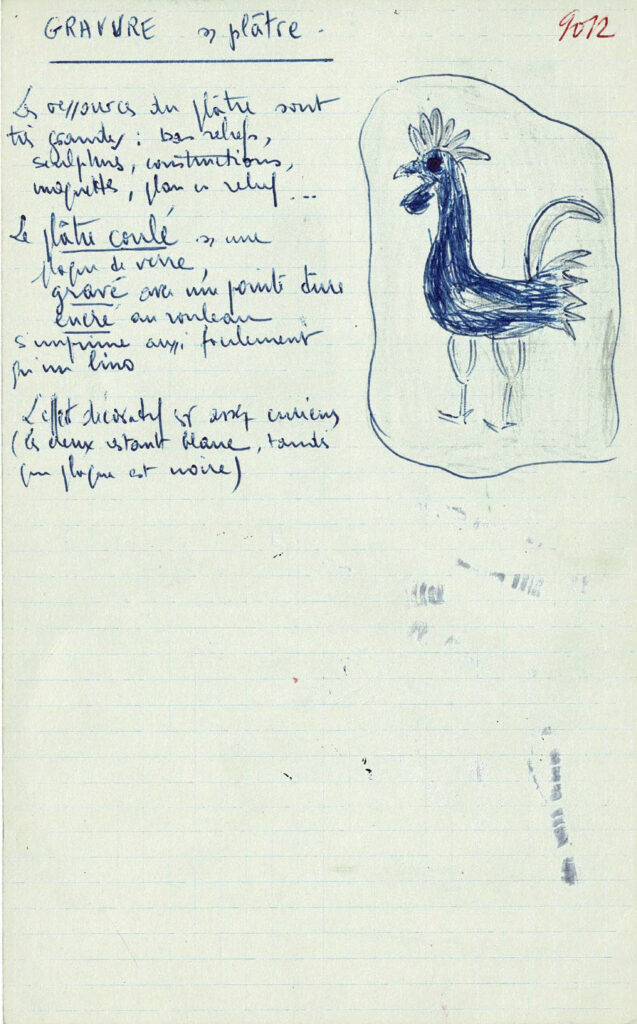 GRAVURE s/ plâtre.
9012
Les ressources du plâtre sont
très grandes : bas reliefs,
sculptures, constructions,
maquettes, plan en relief ...
Le plâtre coulé s/ une
plaque de verre,
gravé avec une pointe dure
encré au rouleau
s'imprime aussi facilement
qu'un lino
L'effet décoratif est assez curieux
(les creux restant blancs, tandis
que plaque est noire)